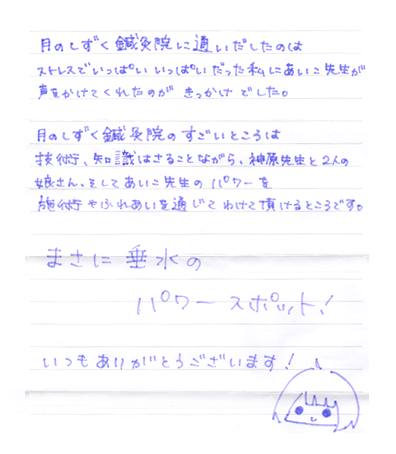 月のしずく鍼灸院に通いだしたのは
ストレスでいっぱいいっぱいだった私にあいこ先生が
声をかけてくれたのが きっかけでした。
月のしずく鍼灸院のすごいところは
技術、知識はさることながら、神原先生と2人の
娘さん、そしてあいこ先生のパワーを
施術やふれあいを通じてわけて頂けるところです。
まさに垂水の
パワースポット!
いつもありがとうございます!